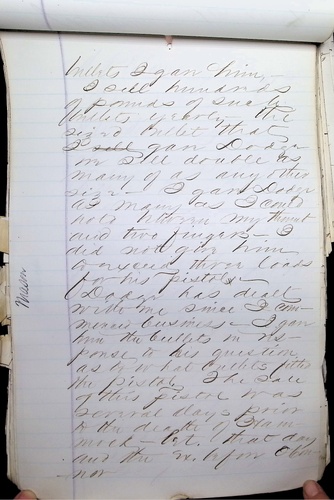 bullets I gave him.
I sell hundreds
of pounds of such
bullets yearly. the
sized bullet that
I sell gave Dodge
or I sell double as
many of as any other
size - I gave Dodge
as many as I could
hold between my thumb
and two fingers - I
did not give him
over two or three loads
for his pistol -
Dodge has dealt
with me since I com-
menced business - I gave
him the bullets in res-
ponse to his question
as to what bullets fitted
the pistol. The sale
of this pistol was
several days prior
to the death of Ham-
mock - that day
and the before
nor
Mason